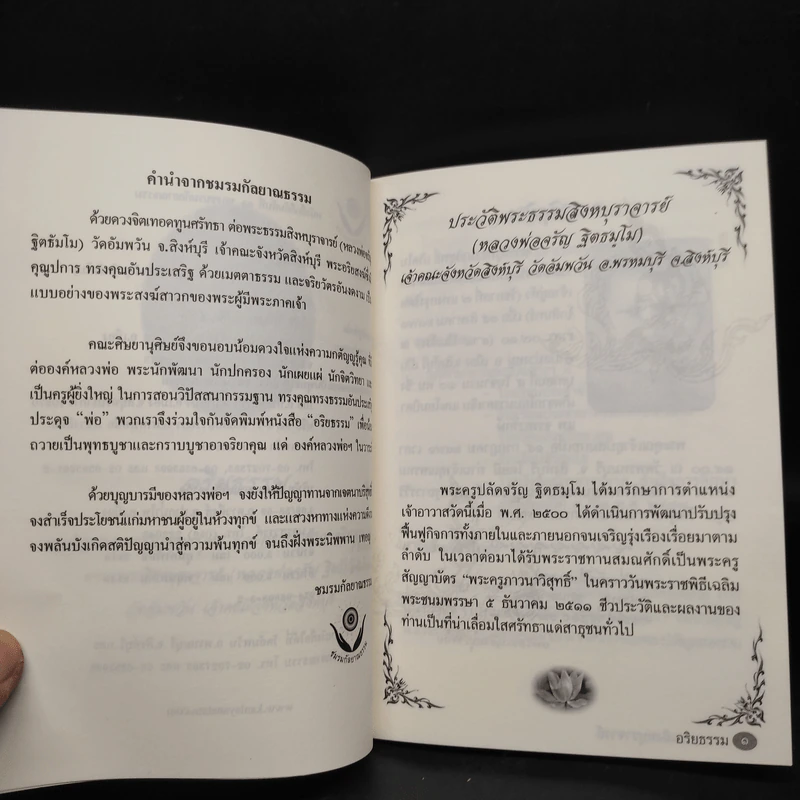 คำนำจากชมรมกัลยาณธรรม
ด้วยดวงจิตเทอดทูนศรัทธา ต่อพระธรรมสิงหบุราจารย์ (หลวงพ่อจรัญ
ฐิตธัมโม) วัดอัมพวัน จ.สิงห์บุรี เจ้าคณะจังหวัดสิงห์บุรี พระอริยสงฆ์
คุณูปการ ทรงคุณอันประเสริฐ ด้วยเมตตาธรรม และจริยวัตรอันงดงาม
แบบอย่างของพระสงฆ์สาวกของพระผู้มีพระภาคเจ้า
คณะศิษยานุศิษย์จึงขอนอบน้อมดวงใจแห่งความกตัญญูรู้คุณ
ต่อองค์หลวงพ่อ พระนักพัฒนา นักปกครอง นักเผยแผ่ นักจิตวิทยา
เป็นครูผู้ยิ่งใหญ่ ในการสอนวิปัสสนากรรมฐาน ทรงคุณทรงธรรมอันประเสริฐ
ประดุจ “พ่อ” พวกเราจึงร่วมใจกันจัดพิมพ์หนังสือ “อริยธรรม” เพื่อ
ถวายเป็นพุทธบูชาและกราบบูชาอาจริยาคุณ แด่ องค์หลวงพ่อฯ
ด้วยบุญบารมีของหลวงพ่อฯ จงยังให้ปัญญาทานจากเจตนาบริสุทธิ์
จงสำเร็จประโยชน์แก่มหาชนผู้อยู่ในห้วงทุกข์ และแสวงหาทางแห่งความ
จงพลันบังเกิดสติปัญญานำสู่ความพ้นทุกข์ จนถึงฝั่งพระนิพพาน
ชมรมกัลยาณธรรม
ชมรมกัลยาณธรรม
ประวัติพระธรรมสิงหบุราจารย์
(หลวงพ่อจรัญ ฐิตธมฺโม)
เจ้าคณะจังหวัดสิงห์บุรี วัดอัมพวัน อ.พรหมบุรี จ.สิงห์บุรี
พระครูปลัดจรัญ ฐิตธมฺโม ได้มารักษาการตำแหน่ง
เจ้าอาวาสวัดนี้เมื่อ พ.ศ. ๒๕๐๐ ได้ดำเนินการพัฒนาปรับปรุง
ฟื้นฟูกิจการทั้งภายในและภายนอกจนเจริญรุ่งเรืองเรื่อยมาตาม
ลำดับ ในเวลาต่อมาได้รับพระราชทานสมณศักดิ์เป็นพระครู
สัญญาบัตร “พระครูภาวนาวิสุทธิ์” ในคราววันพระราชพิธีเฉลิม
พระชนมพรรษา ๕ ธันวาคม ๒๕๑๑ ชีวประวัติและผลงานของ
ท่านเป็นที่น่าเลื่อมใสศรัทธาแด่สาธุชนทั่วไป
อริยธรรม ๑